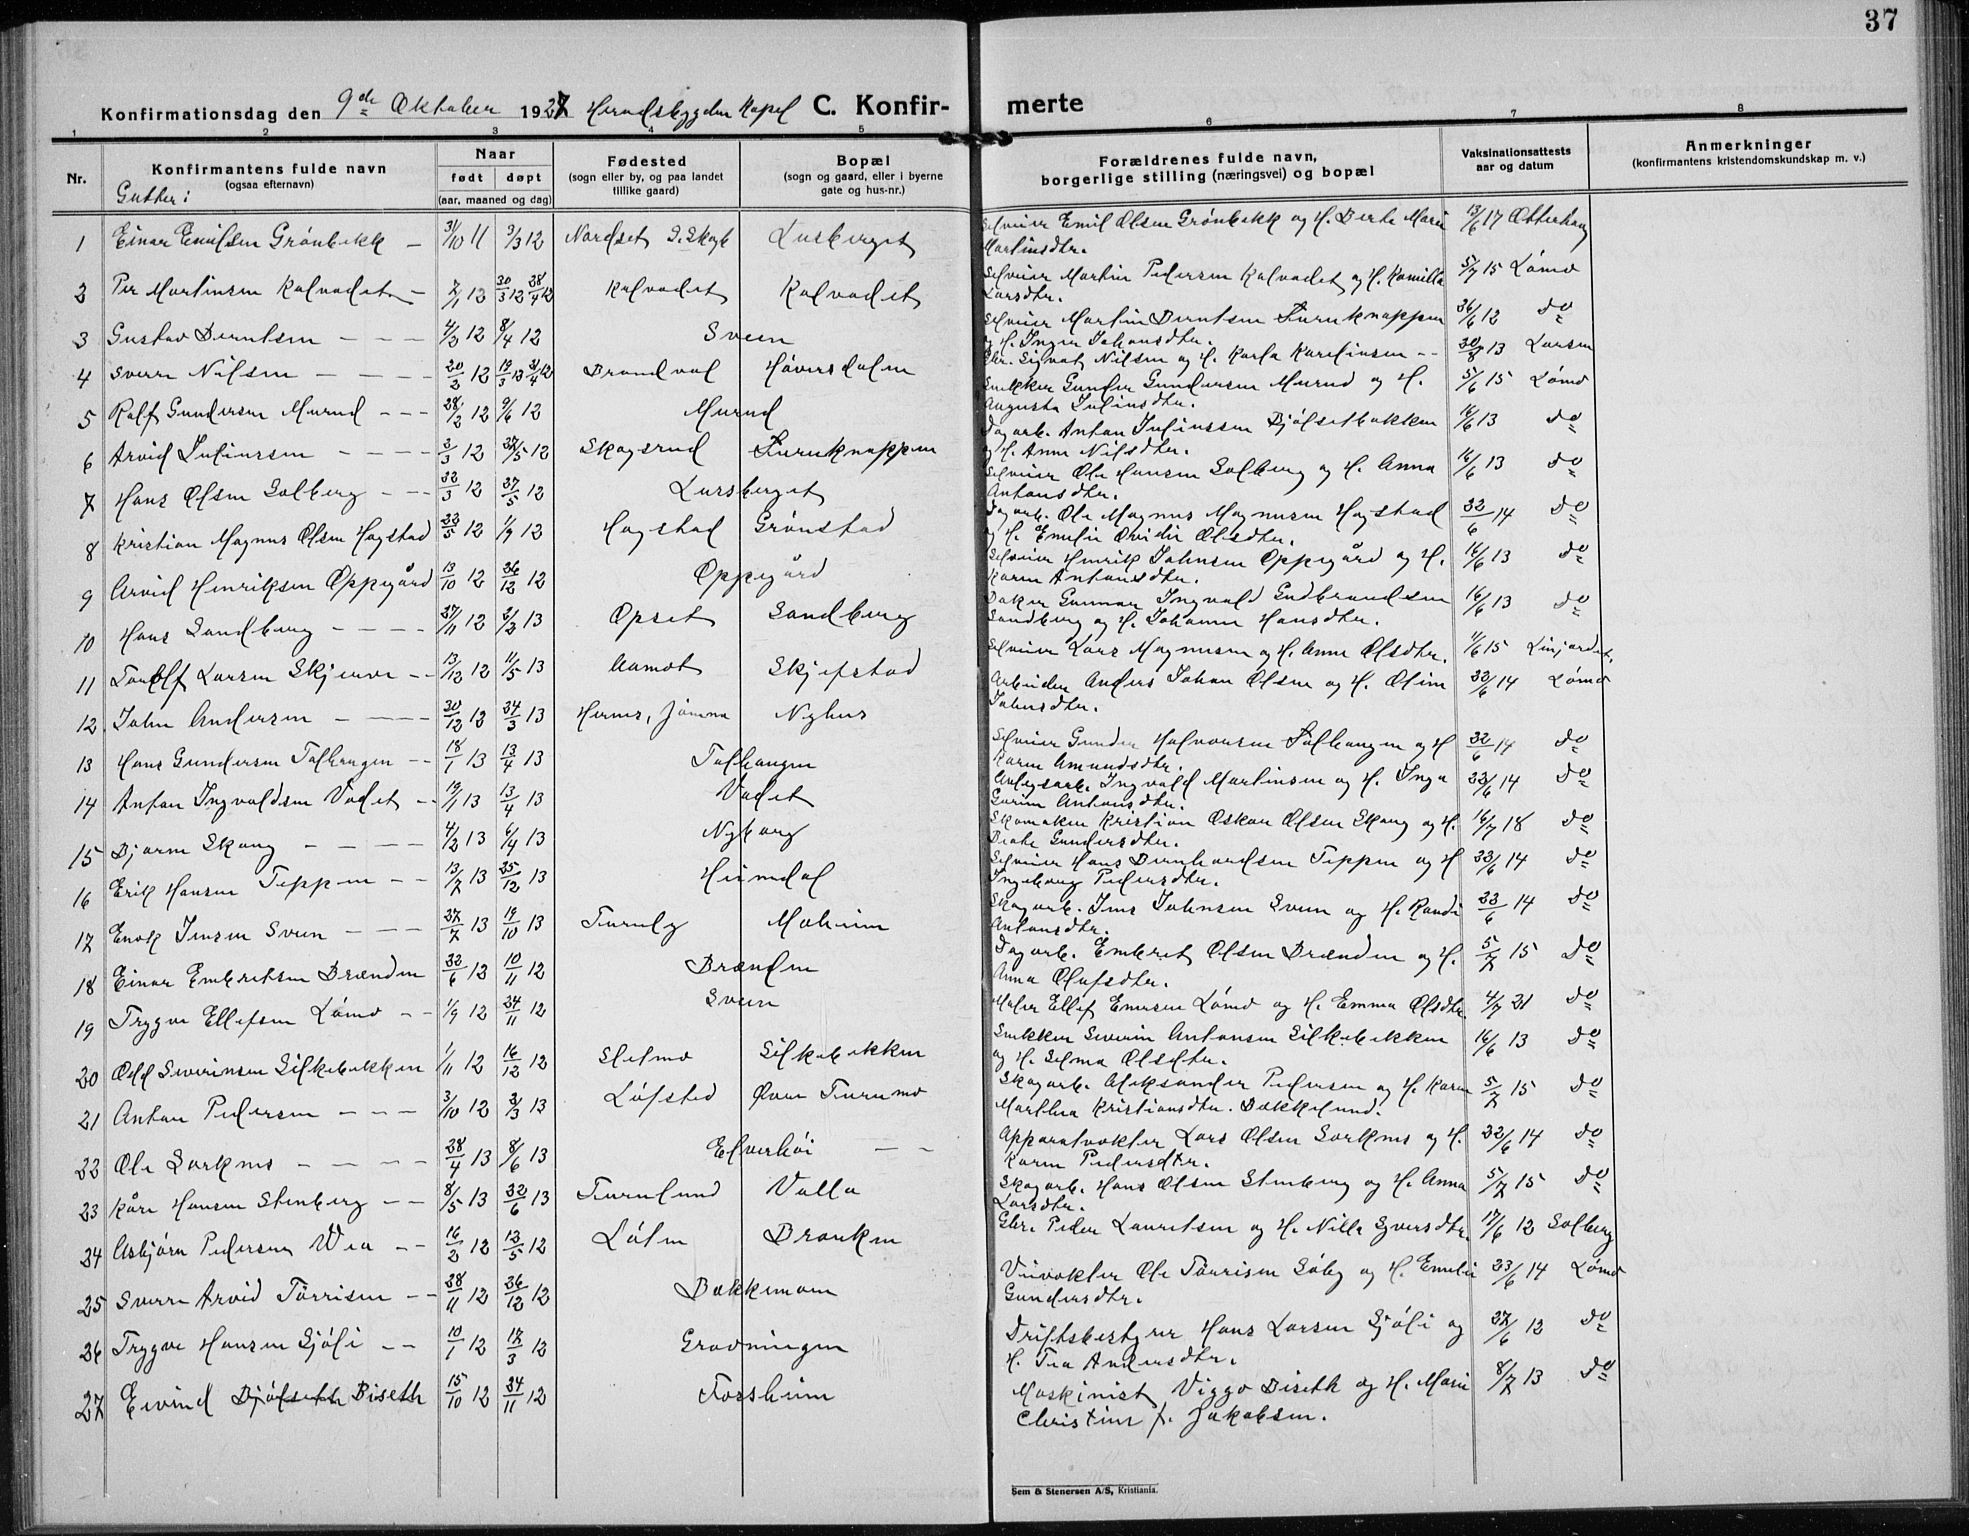 37
Konfirmationsdag den 9de Oktober 1927 Heradsbygden Kapel C. Konfir-merte
1 2 3 4 5 6 7 8
Nr.
Konfirmantens fulde navn
(ogsaa efternavn)
Gutter:
Naar
født døpt
(aar, maaned og dag)
Fødested
(sogn eller by, og paa landet tillike gaard)
Bopæl
(sogn og gaard, eller i byerne gate og hus-nr.)
Forældrenes fulde navn,
borgerlige stilling (næringsvei) og bopæl
Vaksinationsattests
aar og datum
Anmerkninger
(konfirmantens kristendomskundskap m. v.)
1 Einar Emilsen Grönbekk — 31/10 11 3/3 12 Nordset Lusberget Selveier Emil Olsen Grönbekk og H. Berte Marie Martinsdtr. 13/6 17
2 Per Martinsen Kalvadet — 7/1 12 Kalvadet Kalvadet Selveier Martin Pedersen Kalvadet og H. Kamilla Larsdtr. 5/7 15 Lömo
3 Gustav Berntsen — — — 4/2 12 8/4 12 Sveen Selveier Martin Berntsen Furuknappen og H. Inger Johansdtr. 26/6 12 do
4 Sverre Nilsen — — — 20/2 12 Brandval Höversdalen Gbr. Sigvat Nilsen og H. Karla Karelinsen — — 30/8 13 Larsen
5 Rolf Gundersen Murud — — — 28/2 12 9/6 12 Murud Snekker Gunder Gundersen Murud og H. Augusta Juliusdtr. 5/6 15 Lömo
6 Arvid Juliussen — — — — 3/3 12 27/5 12 Skogsrud Furuknappen Dagarb. Anton Juliussen Bjölsetbakken og H. Anne Nilsdtr. 16/6 13 do
7 Hans Olsen Solberg — — — 22/3 12 27/5 12 Lursberget Selveier Ole Hansen Solberg og H. Anna Antonsdtr. 16/6 13 do
8 Kristian Magnus Olsen Hagstad 22/5 12 1/9 12 Hagstad Grönstad Dagarb. Ole Magnus Magnusen Hagstad og H. Emelie Ovidie Olsdtr. 22/6 14 do
9 Arvid Henriksen Oppegård 13/10 12 26/12 12 Oppegård Selveier Henrik Johnsen Oppegård og H. Karen Antonsdtr. 16/6 13 do
10 Hans Sandberg — — — — 27/11 12 2/2 13 Opset Sandberg Baker Gunnar Ingvald Gudbrandsen Sandberg og H. Johanne Hansdtr. 16/6 13 do
11 Torolf Larsen Skjerve — — 13/12 12 11/5 13 Aamot Skjefstad Selveier Lars Magnusen og H. Anne Olsdtr. 11/6 15
12 John Andersen — — — — 30/12 12 24/3 13 Hernes, Jömna Nyhus Arbeider Anders Johan Olsen og H. Oline Johnsdtr. 22/6 14 Lömo
13 Hans Gundersen Tolhaugen — — 18/1 13 13/4 13 Tolhaugen Selveier Gunder Halvorsen Tolhaugen og H. Karen Amundsdtr. 22/6 14 do
14 Anton Ingvaldsen Vadet — — 19/1 13 13/4 13 Vadet Anlegsarb. Ingvald Martinsen og H. Inga Gurine Antonsdtr. 22/6 14 do
15 Bjarne Skaug — — — — 4/2 13 6/4 13 Nyborg Skomaker Kristian Oskar Olsen Skaug og H. Beate Gundersdtr. 16/7 18 do
16 Erik Hansen Teppen — — 13/7 13 25/12 13 Heimdal Selveier Hans Bernhardsen Teppen og H. Ingeborg Pedersdtr. 22/6 14 do
17 Enok Jensen Sveen — — — 27/7 13 19/10 13 Furuly Moheim Skogarb. Jens Johnsen Sveen og H. Randi Antonsdtr. 22/6 14 do
18 Einar Embretsen Brænden 22/6 12 10/11 12 Brænden Dagarb. Embret Olsen Brænden og H. Anna Olufsdtr. 5/7 15 do
19 Trygve Ellefsen Lömo — — 1/9 12 24/11 12 Sveen Maler Ellef Evensen Lömo og H. Emma Olsdtr. 4/7 21 do
20 Odd Severinsen Silkebekken 1/11 12 16/12 12 Stelmo Silkebekken Snekker Severin Antonsen Silkebekken og H. Selma Olsdtr. 16/6 13 do
21 Anton Pedersen — — — 3/10 12 2/3 13 Löfsted Övre Furumo Skogarb. Aleksander Pedersen og H. Karen Marthea Kristiansdtr. Bækkelund. 5/7 15 do
22 Ole Sorknes — — — — 28/4 13 8/6 13 Elverhöi — — Apparatvokter Lars Olsen Sorknes og H. Karen Pedersdtr. 22/6 14 do
23 Kåre Hansen Stenberg — — 8/5 13 22/6 13 Furulund Valla Skogarb. Hans Olsen Stenberg og H. Anna Larsdtr. 5/7 15 do
24 Asbjörn Pedersen Wea — — 16/2 12 12/5 12 Löten Branken Gbr. Peder Lauritsen og H. Nille Syversdtr. 17/6 12 Solberg
25 Sverre Arvid Törrisen — — 28/11 12 26/12 12 Bækkemoen Veivokter Ole Törrisen Söby og H. Emelie Gundersdtr. 23/6 14 Lömo
26 Trygve Hansen Sjöli — — 10/1 12 17/3 12 Gravningen Driftsbestyrer Hans Larsen Sjöli og H. Tea Andersdtr. 27/6 12 do
27 Eivind Bjölseth Biseth 15/10 12 24/11 12 Forsheim Maskinist Viggo Biseth og H. Marie Christine f. Jakobsen. 8/7 13 do
Sem & Stenersen A/S, Kristiania.